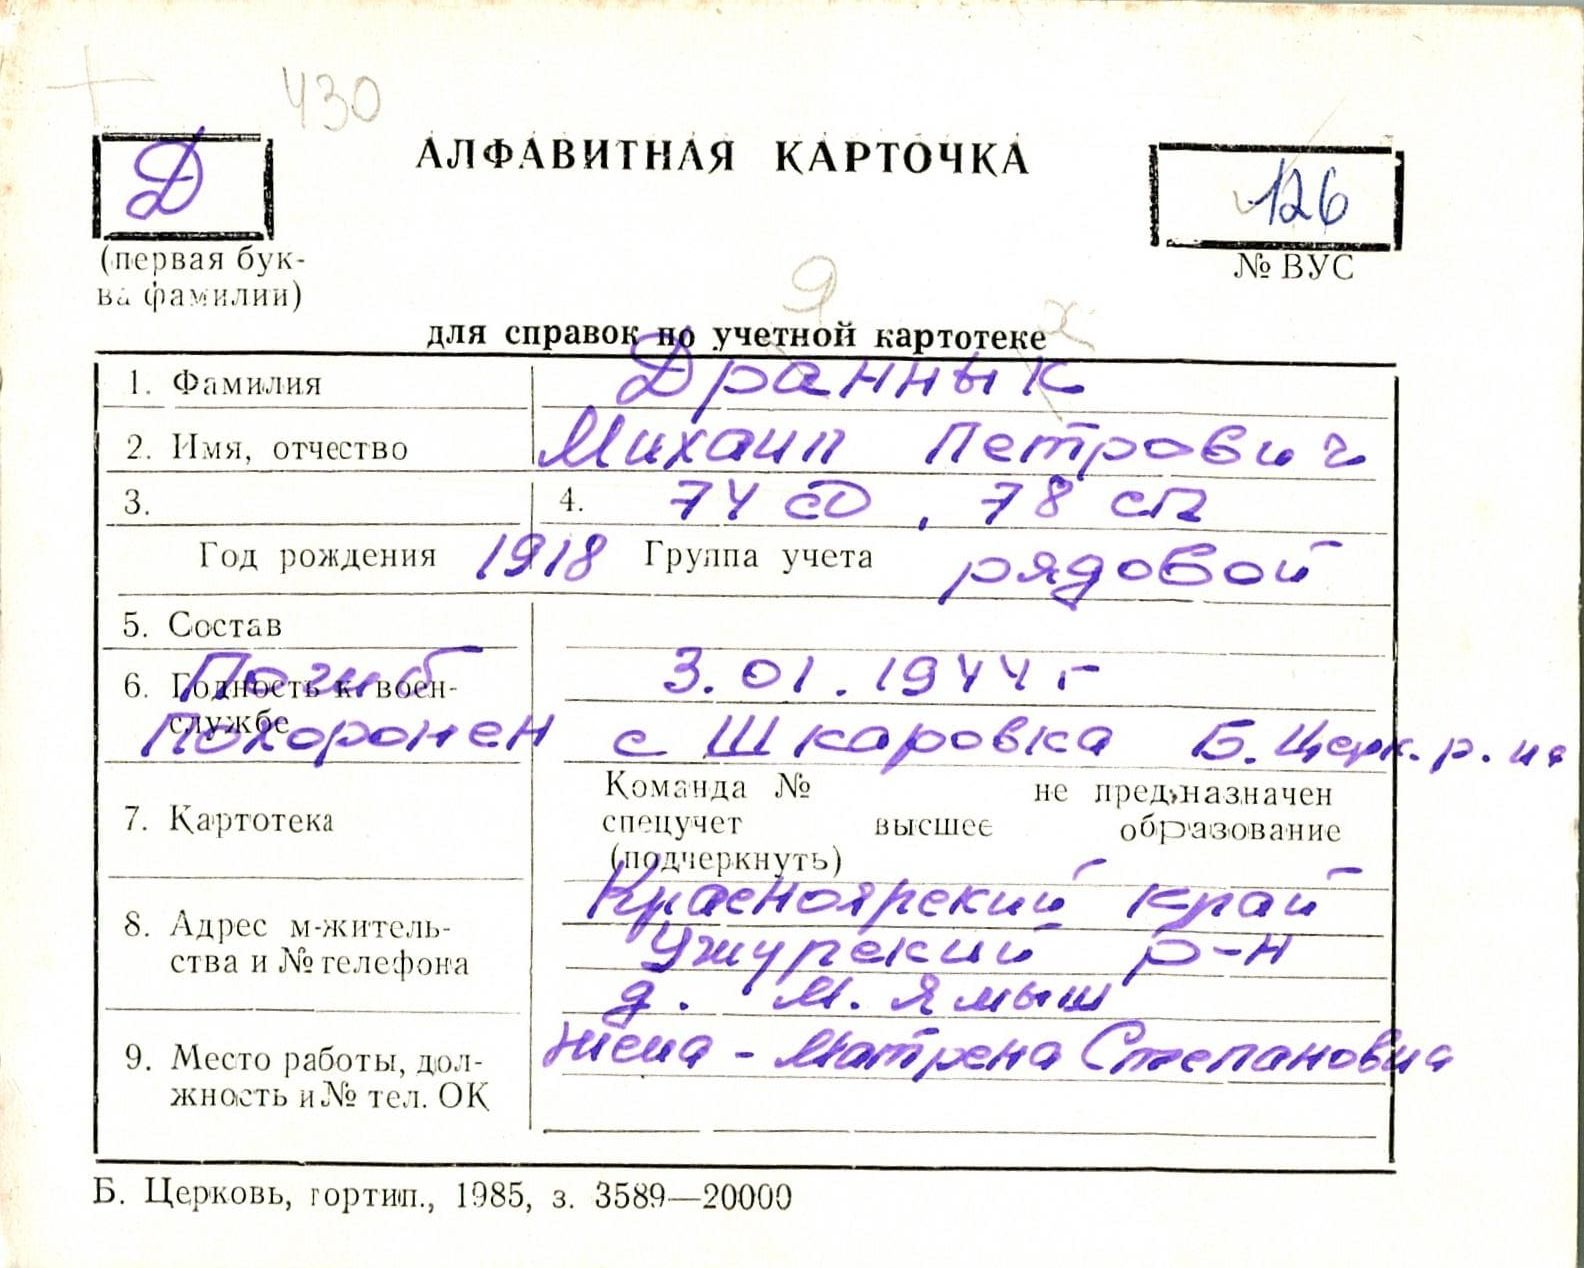 430
Д
АЛФАВИТНАЯ КАРТОЧКА
126
(первая бук-
ва фамилии)
№ ВУС
Я
х
для справок по учетной картотеке
1. Фамилия Драннык
2. Имя, отчество Михаил Петрович
3. 4. 74 сд, 78 сп
Год рождения 1918 Группа учета рядовой
5. Состав
6. Годность к воен-
службе
Погиб 3.01.1944 г
Похоронен с Шкаровка Б.Церк.р.на
Команда № не предназначен
7. Картотека спецучет высшее образование
(подчеркнуть)
8. Адрес м-житель-
ства и № телефона
Красноярский край
Ужурский р-н
д. М. Ямыш
9. Место работы, дол-
жность и № тел. ОК
Жена - Матрена Степановна
Б. Церковь, гортип., 1985, з. 3589—20000